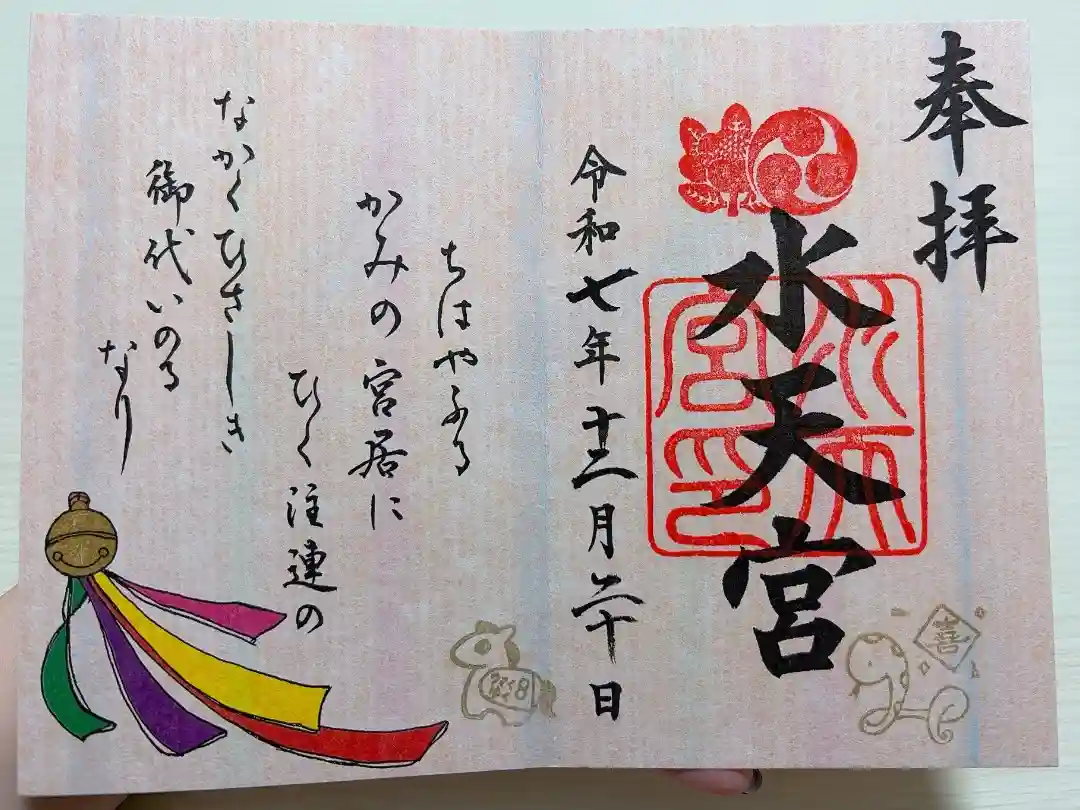 奉拝
水天宮
水天宮印
令和七年十二月二十日
ちはやふる
かみの宮居に
ひく注連の
なかくひさしき
御代いのる
なり
喜